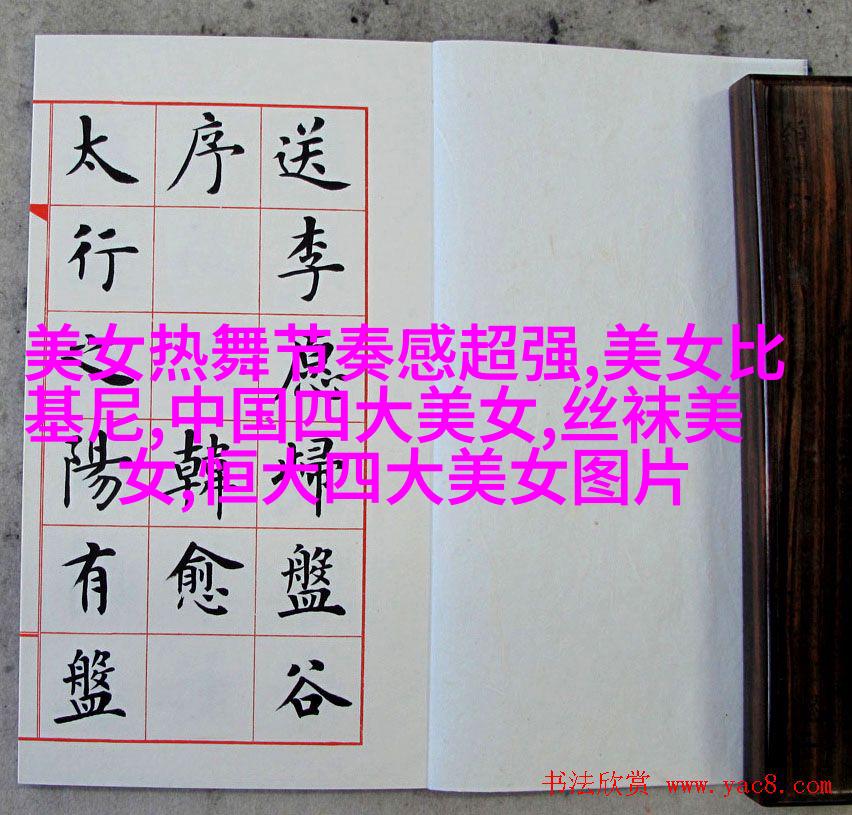 送李愿歸盤谷
序韓愈
太行之陽有盤
美女热舞节奏感超强,美女比
基尼,中国四大美女,丝袜美
女,恒大四大美女图片
书法欣赏 www.yac8.com